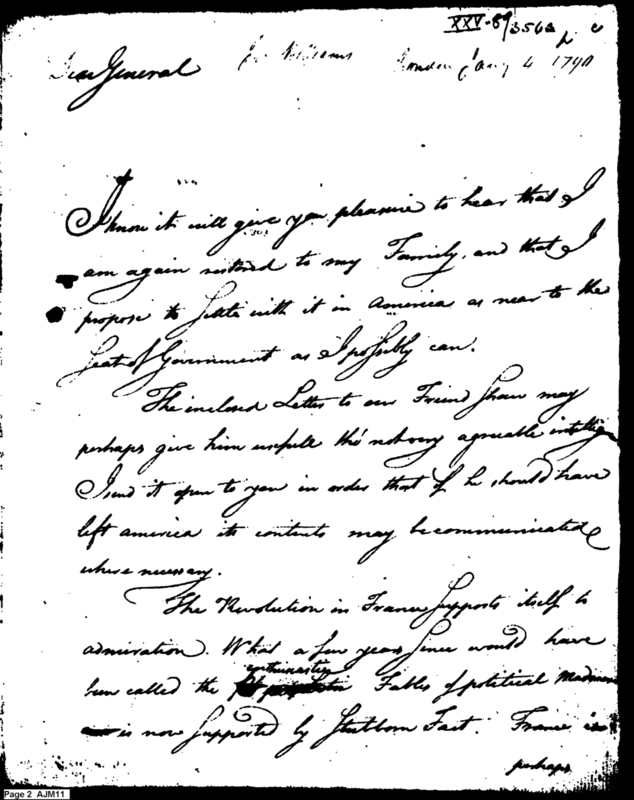 XXV-89/3563
Dear General
J. Williams
London Jany 4 1790
I know it will give you pleasure to hear that I
am again restored to my Family, and that I
propose to settle with it in America as near to the
Seat of Government as I possibly can.
The inclosed Letter to our Friend Shaw may
perhaps give him usefull tho' not very agreable
I send it open to you in order that if he should have
left america its contents may be communicated
where necessary.
The Revolution in France supports itself to
admiration. What a few years since would have
enthusiastic
been called the Fables of political Madmen
is now supported by Stubborn Fact. France is
perhaps
Page 2 AJM11